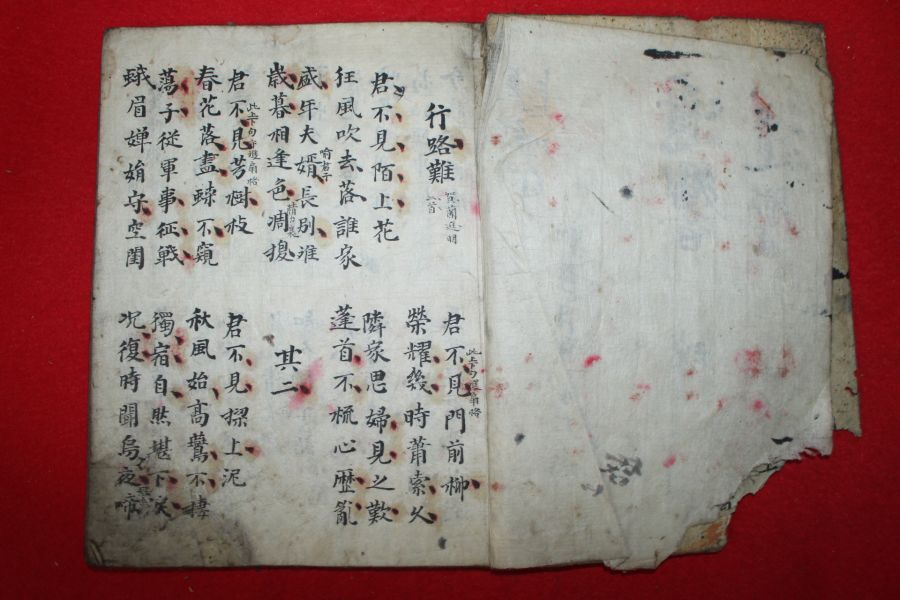 行路難
賀蘭進明
君不見門前柳
榮耀幾時蕭索久
君不見陌上花
狂風吹去落誰家
隣家思婦見之歎
蓬首不梳心歷亂
盛年夫婿長別離
歲暮相逢色凋換
其二
君不見芳樹枝
春花落盡蜂不窺
君不見樑上泥
秋風始高鷰不棲
蕩子從軍事征戰
蛾眉嬋娟守空閨
獨宿自然堪下淚
况復時聞烏夜啼